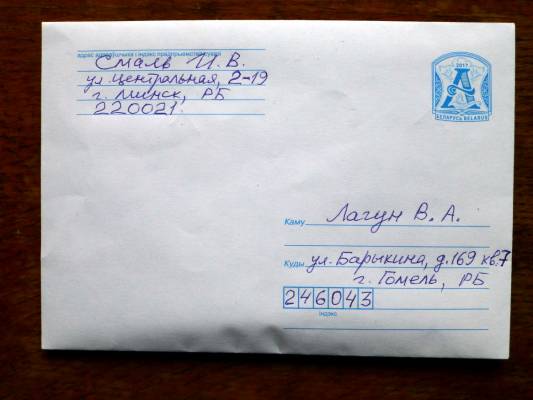 Смаль И. В.
ул. Центральная, 2-19
г. Минск, РБ
220021
2017
БЕЛАРУСЬ BELARUS
Каму Лагун В. А.
Куды ул. Барыкина, д. 169 кв. 7
г. Гомель, РБ
246043
індэкс